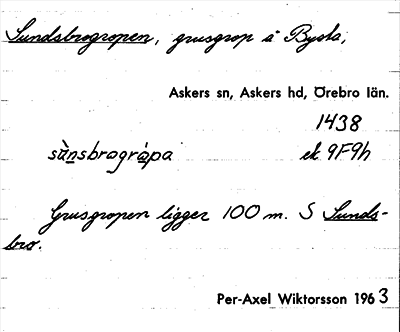 Sundsbrogropen, grusgrop å Bysta,
Askers sn, Askers hd, Örebro län.
1438
sùnsbrogrȧpa ek 9F9h
Grusgropen ligger 100 m. S Sunds-
bro.
Per-Axel Wiktorsson 1963